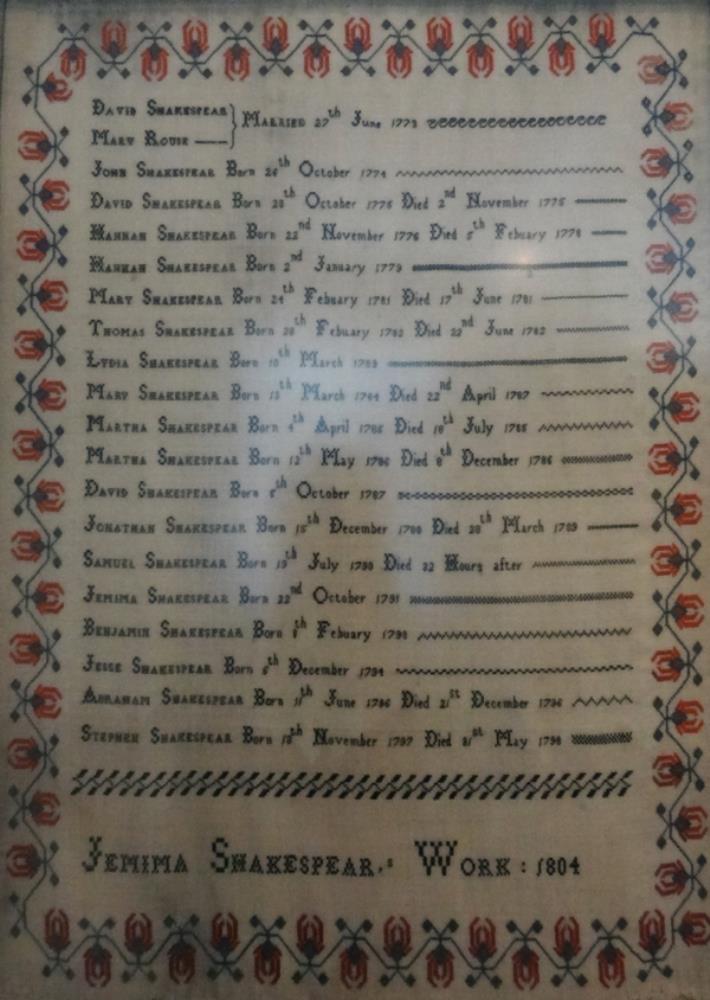 David Shakespear
Married 27th June 1773
Mary Rouse
John Shakespear Born 26th October 1774
David Shakespear Born 28th October 1775 Died 2nd November 1775
Hannah Shakespear Born 22nd November 1776 Died 5th Febuary 1778
Hannah Shakespear Born 2nd January 1779
Mary Shakespear Born 24th Febuary 1781 Died 17th June 1781
Thomas Shakespear Born 28th Febuary 1782 Died 22nd June 1782
Lydia Shakespear Born 10th March 1783
Mary Shakespear Born 13th March 1784 Died 22nd April 1787
Martha Shakespear Born 4th April 1785 Died 10th July 1785
Martha Shakespear Born 12th May 1786 Died 8th December 1786
David Shakespear Born October 1787
Jonathan Shakespear Born 15th December 1788 Died 28th March 1789
Samuel Shakespear Born 19th July 1790 Died 22 Hours after
Jemima Shakespear Born 22nd October 1791
Benjamin Shakespear Born Febuary 1793
Jesse Shakespear Born December 1794
Abraham Shakespear Born 11th June 1796 Died 21st December 1796
Stephen Shakespear Born 18th November 1797 Died May 1798
Jemima Shakespear,s Work : 1804